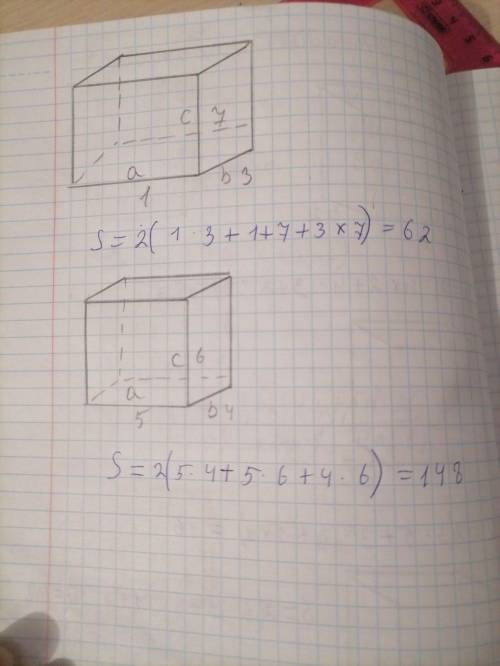 c 7
a
1
b 3
S = 2( 1 · 3 + 1 + 7 + 3 × 7) = 62
c 6
a
5
b 4
S = 2(5 · 4 + 5 · 6 + 4 · 6) = 148